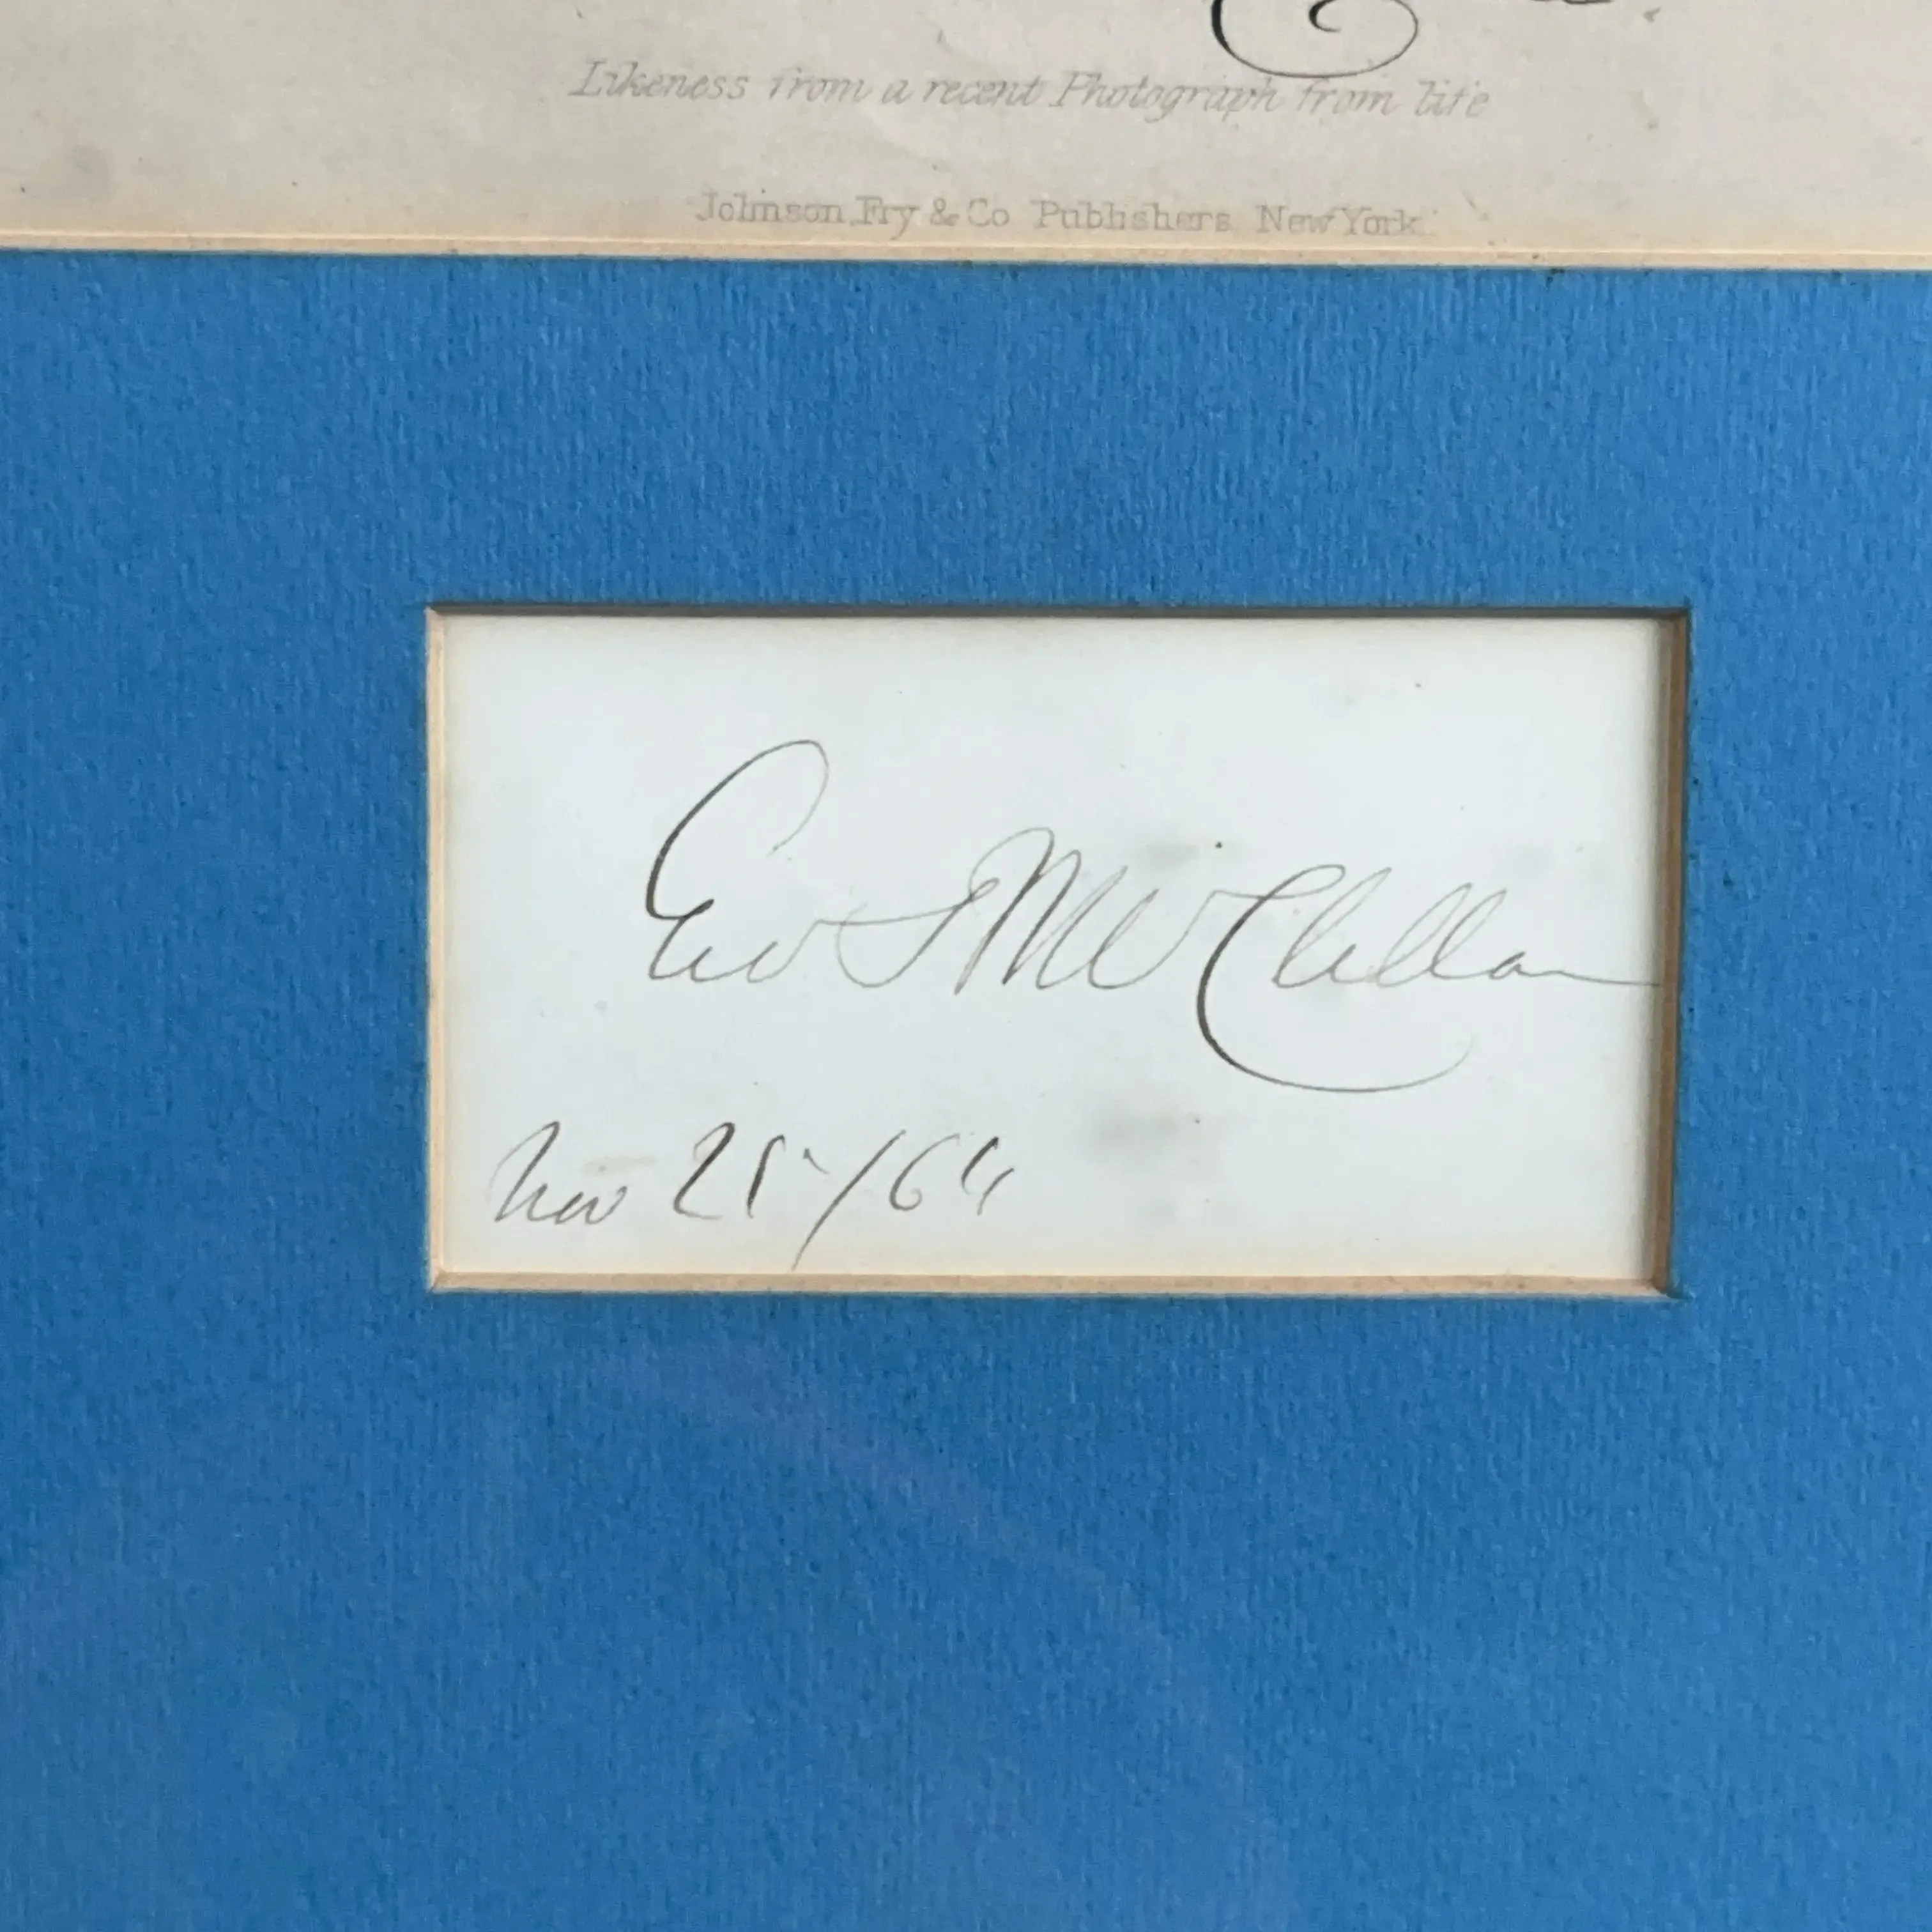 Likeness from a recent Photograph from life
Johnson, Fry & Co Publishers, New York.
Geo B McClellan
Nov 25/64